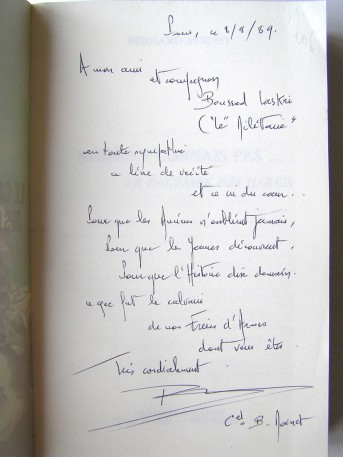 ce 8/9/89.
A mon ami
et compagnon
Boussad Laskri
en toute sympathie
ce livre de vérité
et ce cri du cœur...
Pour que les Anciens n'oublient jamais,
Pour que les Jeunes découvrent..
Pour que l'Histoire dise demain.
ce que fut le calvaire
de nos Frères d'Armes
dont vous êtes.
Très cordialement
Cel B.